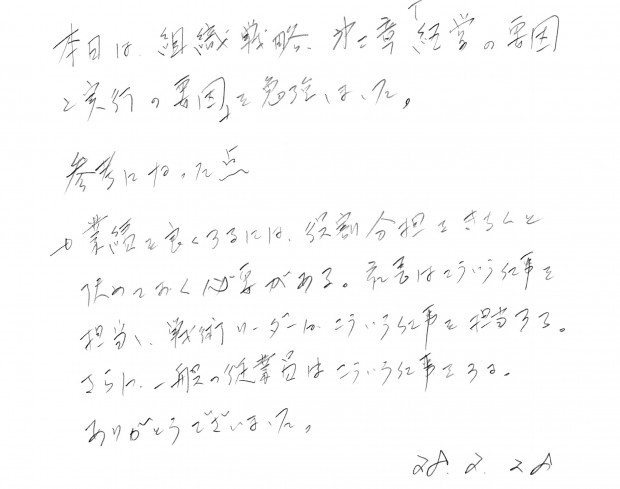 本日は、組織戦略、第二章「経営の要因
と実行の要因」を勉強しました。
参考になった点
業績を良くするには、役割分担をきちんと
決めておく必要がある。社長はこういう仕事を
担当し、戦術リーダーは、こういう仕事を担当する。
さらに、一般の従業員はこういう仕事をする。
ありがとうございました。
28.2.28